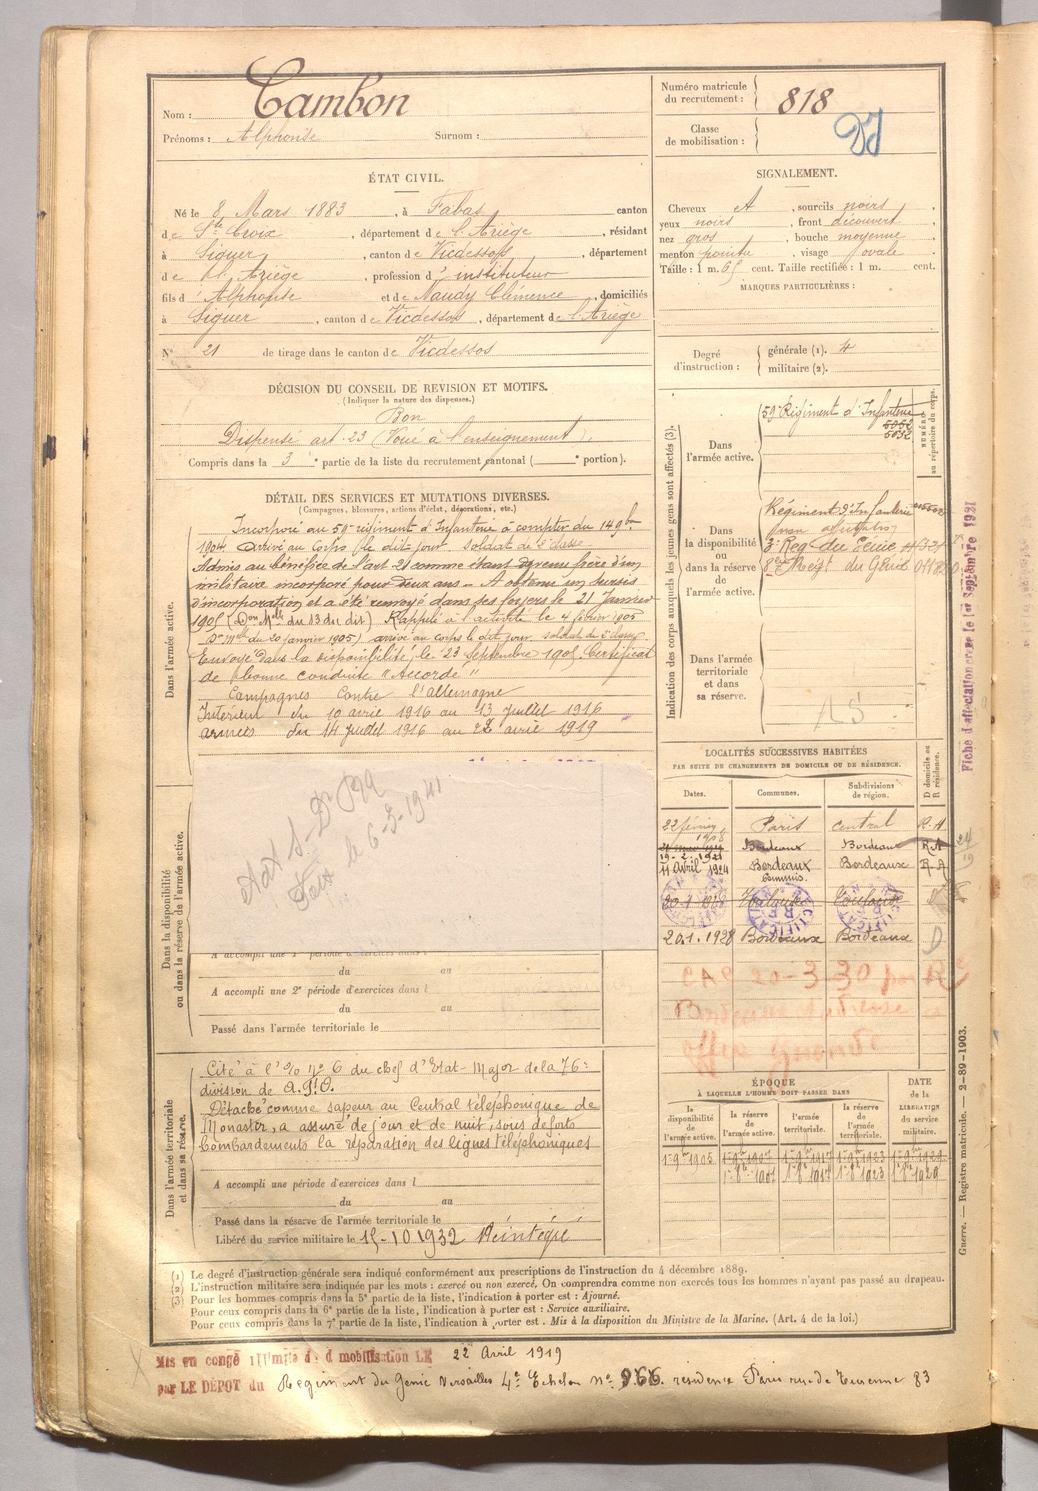 Nom : Cambon
Prénoms : Alphonse Surnom :
Numéro matricule du recrutement : 818
Classe de mobilisation :
ÉTAT CIVIL.
Né le 8 Mars 1883, à Fabas canton
de Ste Croix, département de l'Ariège, résidant
à Siguer, canton de Vicdessos, département
de l'Ariège, profession d'instituteur
fils d'Alphonse et de Naudy Clémence, domiciliés
à Siguer, canton de Vicdessos, département de l'Ariège
N° 21 de tirage dans le canton de Vicdessos
SIGNALEMENT.
Cheveux et, sourcils noirs
yeux noirs, front découvert
nez gros, bouche moyenne
menton pointu, visage ovale
Taille : 1 m. 65 cent. Taille rectifiée : 1 m. cent.
MARQUES PARTICULIÈRES :
Degré d'instruction : générale (1). 4
militaire (2).
DÉCISION DU CONSEIL DE REVISION ET MOTIFS.
(Indiquer la nature des dispenses.)
Bon
Dispensé art. 23 (Voué à l'enseignement).
Compris dans la 3e partie de la liste du recrutement cantonal ( e portion).
DÉTAIL DES SERVICES ET MUTATIONS DIVERSES.
(Campagnes, blessures, actions d'éclat, décorations, etc.)
Dans l'armée active.
Incorporé au 59e régiment d'Infanterie à compter du 14 9bre
1904 arrivé au Corps le dit jour. soldat de 2e classe
Admis au bénéfice de l'art 21 comme étant devenu frère d'un
militaire incorporé pour deux ans - A obtenu un sursis
d'incorporation et a été renvoyé dans ses foyers le 21 Janvier
1905 (Don Mlle du 13 du dit) Rappelé à l'activité le 4 février 1905
(Don Mlle du 20 janvier 1905) arrivé au corps le dit jour soldat de 2e classe
Envoyé dans la disponibilité le 23 Septembre 1905. Certificat
de bonne conduite "Accordé"
Campagnes Contre l'allemagne
Intérieur du 10 avril 1916 au 13 Juillet 1916
armées du 14 juillet 1916 au 22 avril 1919
Indication des corps auxquels les jeunes gens sont affectés (3).
NUMÉRO au répertoire du corps.
Dans l'armée active.
59e Régiment d'Infanterie
5052
5032
Dans la disponibilité ou dans la réserve de l'armée active.
Régiment d'Infanterie
3e Reg du Génie
8ème Regt du Génie
Dans l'armée territoriale et dans sa réserve.
Fiche d'affectation créée le 1er Septembre 1921
LOCALITÉS SUCCESSIVES HABITÉES
PAR SUITE DE CHANGEMENTS DE DOMICILE OU DE RÉSIDENCE.
Dates. Communes. Subdivisions de région. D domicile ou R résidence.
22 février 1908 Paris central R. A
Bordeaux Bordeaux R. A
19-2-1921
11 Avril 1924 Bordeaux Bordeaux R. A
20-1-1928 Toulouse Toulouse
RECTIFICATION
20.1.1928 Bordeaux Bordeaux D
20-3-30
Dans la disponibilité ou dans la réserve de l'armée active.
le 6-3-1941
A accompli une 1e période d'exercices dans l
du au
A accompli une 2e période d'exercices dans l
du au
Passé dans l'armée territoriale le
Dans l'armée territoriale et dans sa réserve.
Cité à l'O n° 6 du chef d'Etat-Major de la 76e
division de
Détaché comme sapeur au Central téléphonique de
Monastir, a assuré de jour et de nuit, sous de forts
bombardements la réparation des lignes téléphoniques
A accompli une période d'exercices dans l
du au
Passé dans la réserve de l'armée territoriale le
Libéré du service militaire le 15-10 1932 Réintégré
ÉPOQUE
À LAQUELLE L'HOMME DOIT PASSER DANS
DATE de la LIBÉRATION du service militaire.
la disponibilité de l'armée active. la réserve de l'armée active. l'armée territoriale. la réserve de l'armée territoriale.
1er 9bre 1905 1er 9bre 1907 1er 9bre 1917 1er 9bre 1923 1er 9bre 1929
1er 8bre 1907 1er 8bre 1917 1er 8bre 1923 1er 8bre 1929
(1) Le degré d'instruction générale sera indiqué conformément aux prescriptions de l'instruction du 4 décembre 1889.
(2) L'instruction militaire sera indiquée par les mots : exercé ou non exercé. On comprendra comme non exercés tous les hommes n'ayant pas passé au drapeau.
(3) Pour les hommes compris dans la 5e partie de la liste, l'indication à porter est : Ajourné.
Pour ceux compris dans la 6e partie de la liste, l'indication à porter est : Service auxiliaire.
Pour ceux compris dans la 7e partie de la liste, l'indication à porter est : Mis à la disposition du Ministre de la Marine. (Art. 4 de la loi.)
Guerre. — Registre matricule. — 2-89-1903.
Mis en congé illimité de démobilisation LE 22 Avril 1919
par LE DÉPOT du Régiment du Génie Versailles 4e Echelon n° 966. résidence Paris rue de Turenne 83